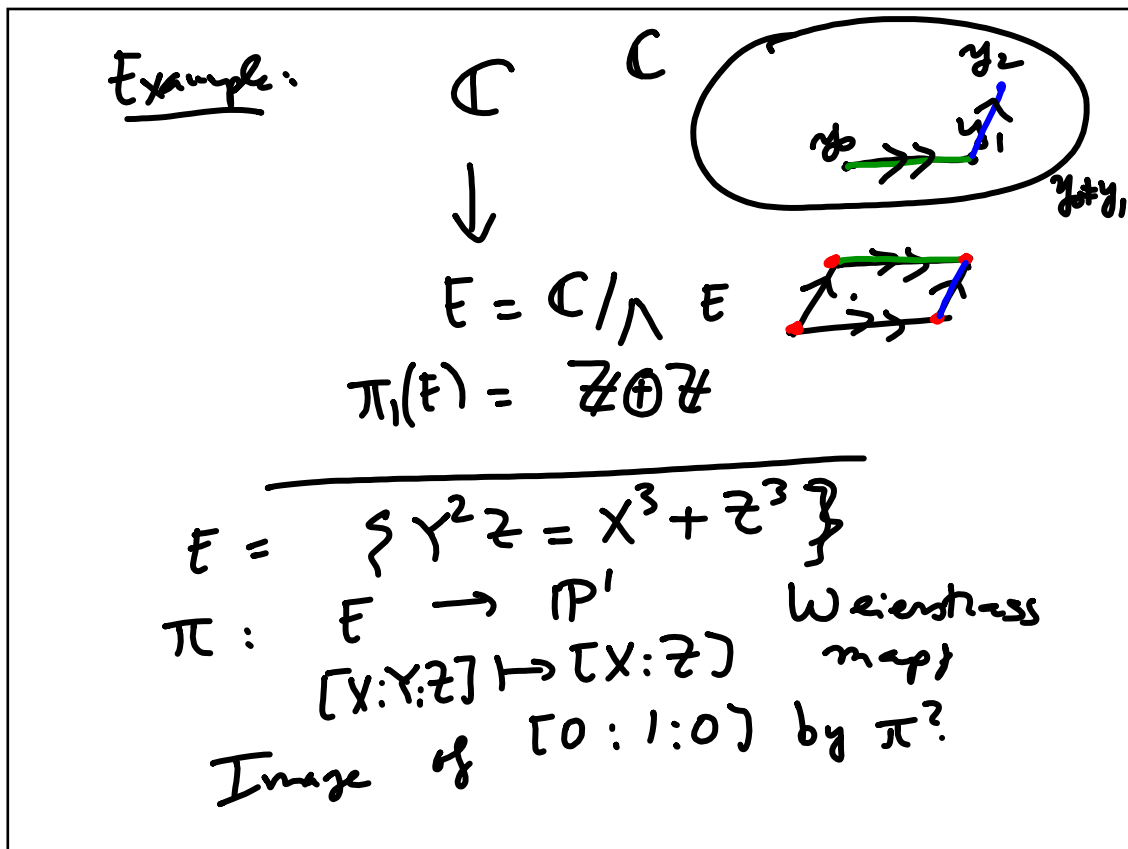 Example:
ℂ
ℂ
y₀
y₁
y₂
y₀≠y₁
↓
E = ℂ/Λ
E
π₁(E) = ℤ⊕ℤ
E = {Y²Z = X³ + Z³}
π : E → ℙ¹ Weierstrass
[X:Y:Z] ↦ [X:Z] map
Image of [0:1:0] by π?